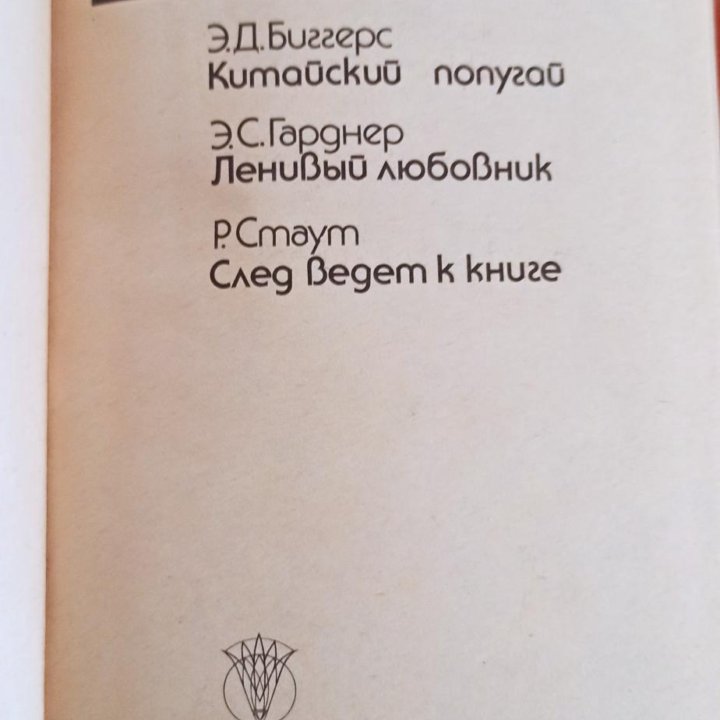 Э.Д.Биггерс
Китайский попугай
Э.С.Гарднер
Ленивый любовник
Р.Стаут
След ведет к книге